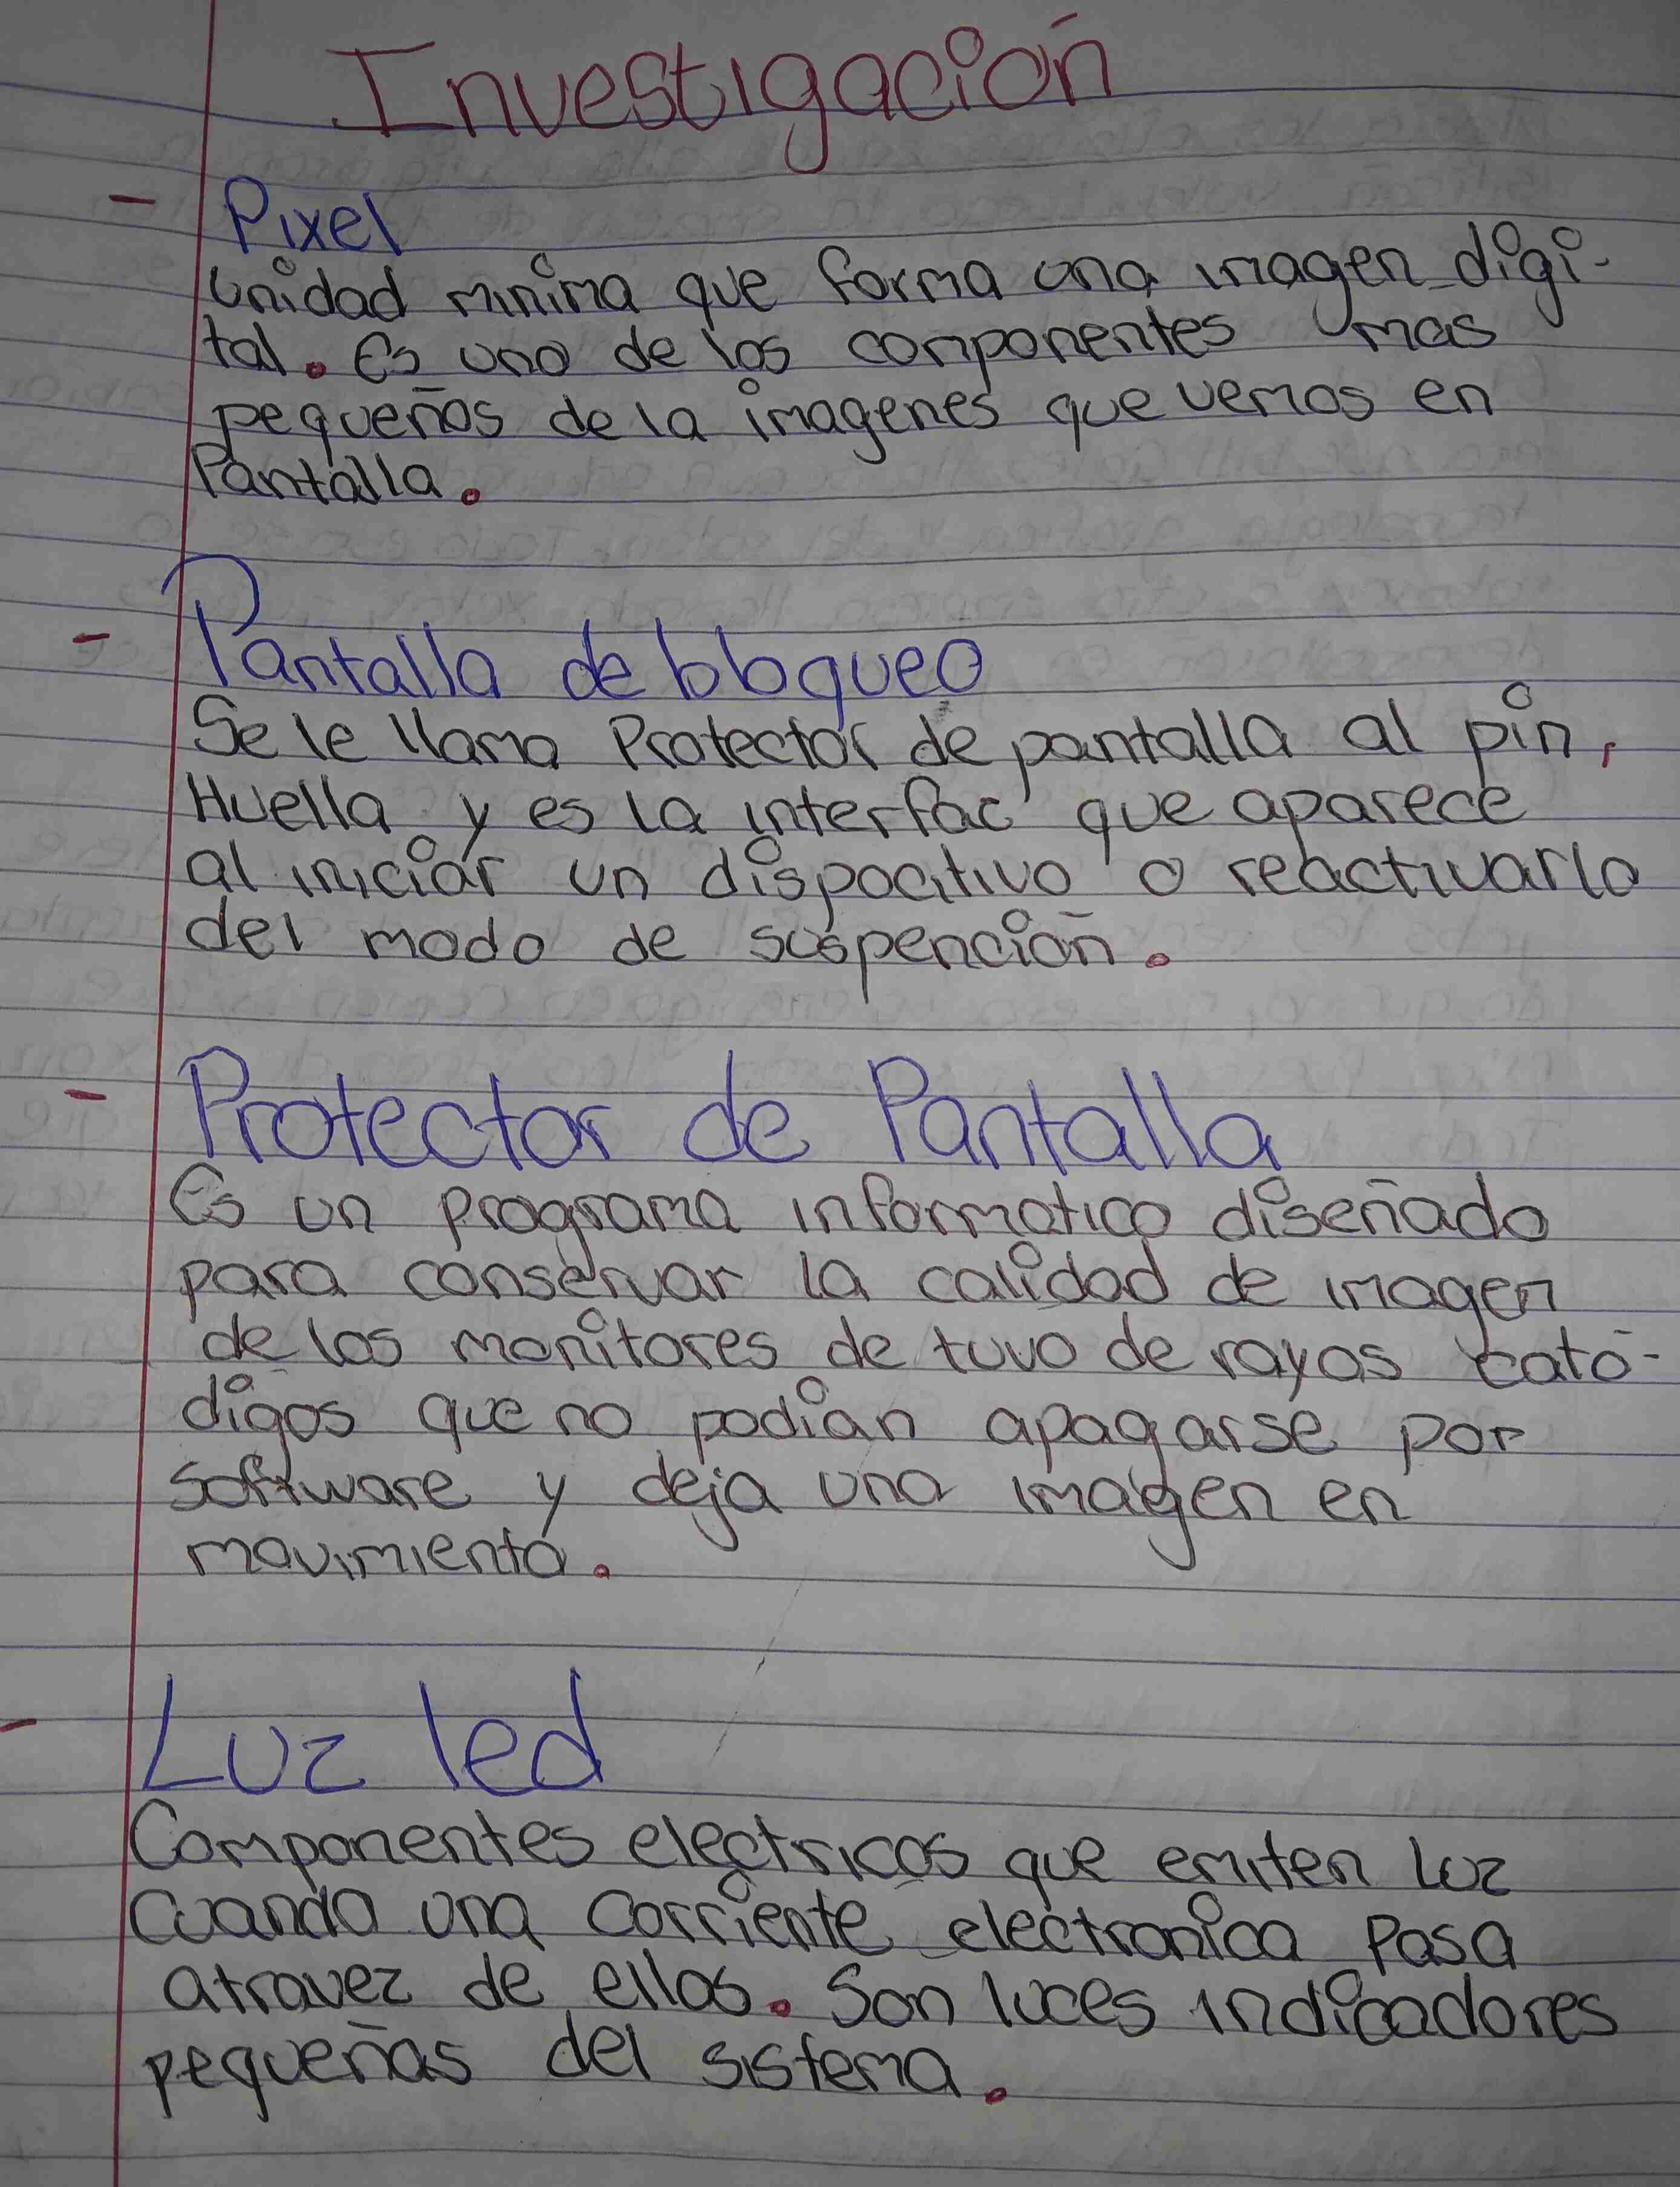 Investigación
- Pixel
Unidad minima que forma una imagen digi-
tal. Es uno de los componentes mas
pequeños de la imagenes que vemos en
Pantalla.
- Pantalla de bloqueo
Se le llama Protector de pantalla al pin,
Huella y es la interfac que aparece
al iniciar un dispocitivo o reactivarlo
del modo de suspención.
- Protector de Pantalla
Es un programa informatico diseñado
para conservar la calidad de imagen
de los monitores de tuvo de rayos cató-
digos que no podian apagarse por
software y deja una imagen en
movimiento.
- Luz led
Componentes electricos que emiten luz
Cuando una corriente electronica Pasa
atravez de ellos. Son luces indicadores
pequeñas del sistema.